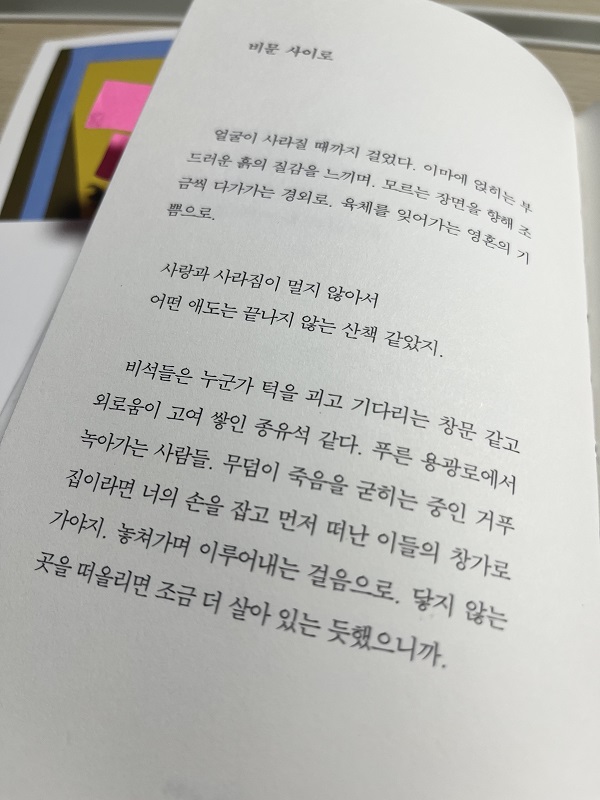 비문 사이로
얼굴이 사라질 때까지 걸었다. 이마에 얹히는 부
드러운 흙의 질감을 느끼며. 모르는 장면을 향해 조
금씩 다가가는 경외로. 육체를 잊어가는 영혼의 기
쁨으로.
사랑과 사라짐이 멀지 않아서
어떤 애도는 끝나지 않는 산책 같았지.
비석들은 누군가 턱을 괴고 기다리는 창문 같고
외로움이 고여 쌓인 종유석 같다. 푸른 용광로에서
녹아가는 사람들. 무덤이 죽음을 굳히는 중인 거푸
집이라면 너의 손을 잡고 먼저 떠난 이들의 창가로
가야지. 놓쳐가며 이루어내는 걸음으로. 닿지 않는
곳을 떠올리면 조금 더 살아 있는 듯했으니까.